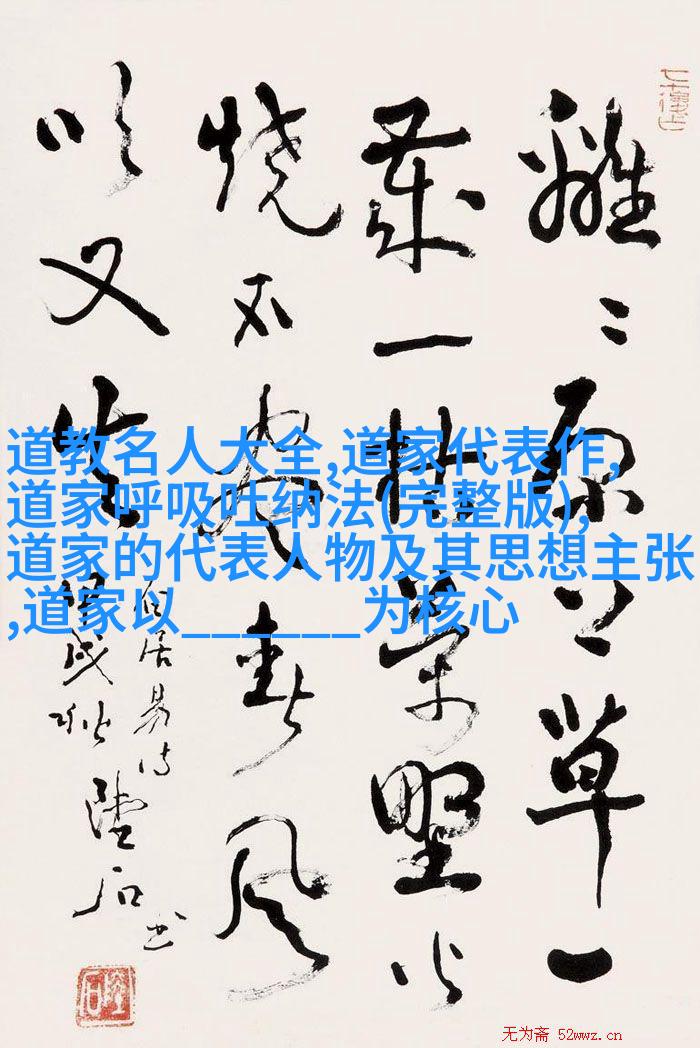 離〻原上草一
歲一枯榮野火
燒不盡春風
吹又生
白居易诗
道教名人大全,道家代表作,
道家呼吸吐纳法(完整版),
道家的代表人物及其思想主张
,道家以______为核心
无为斋 52wwz.cn